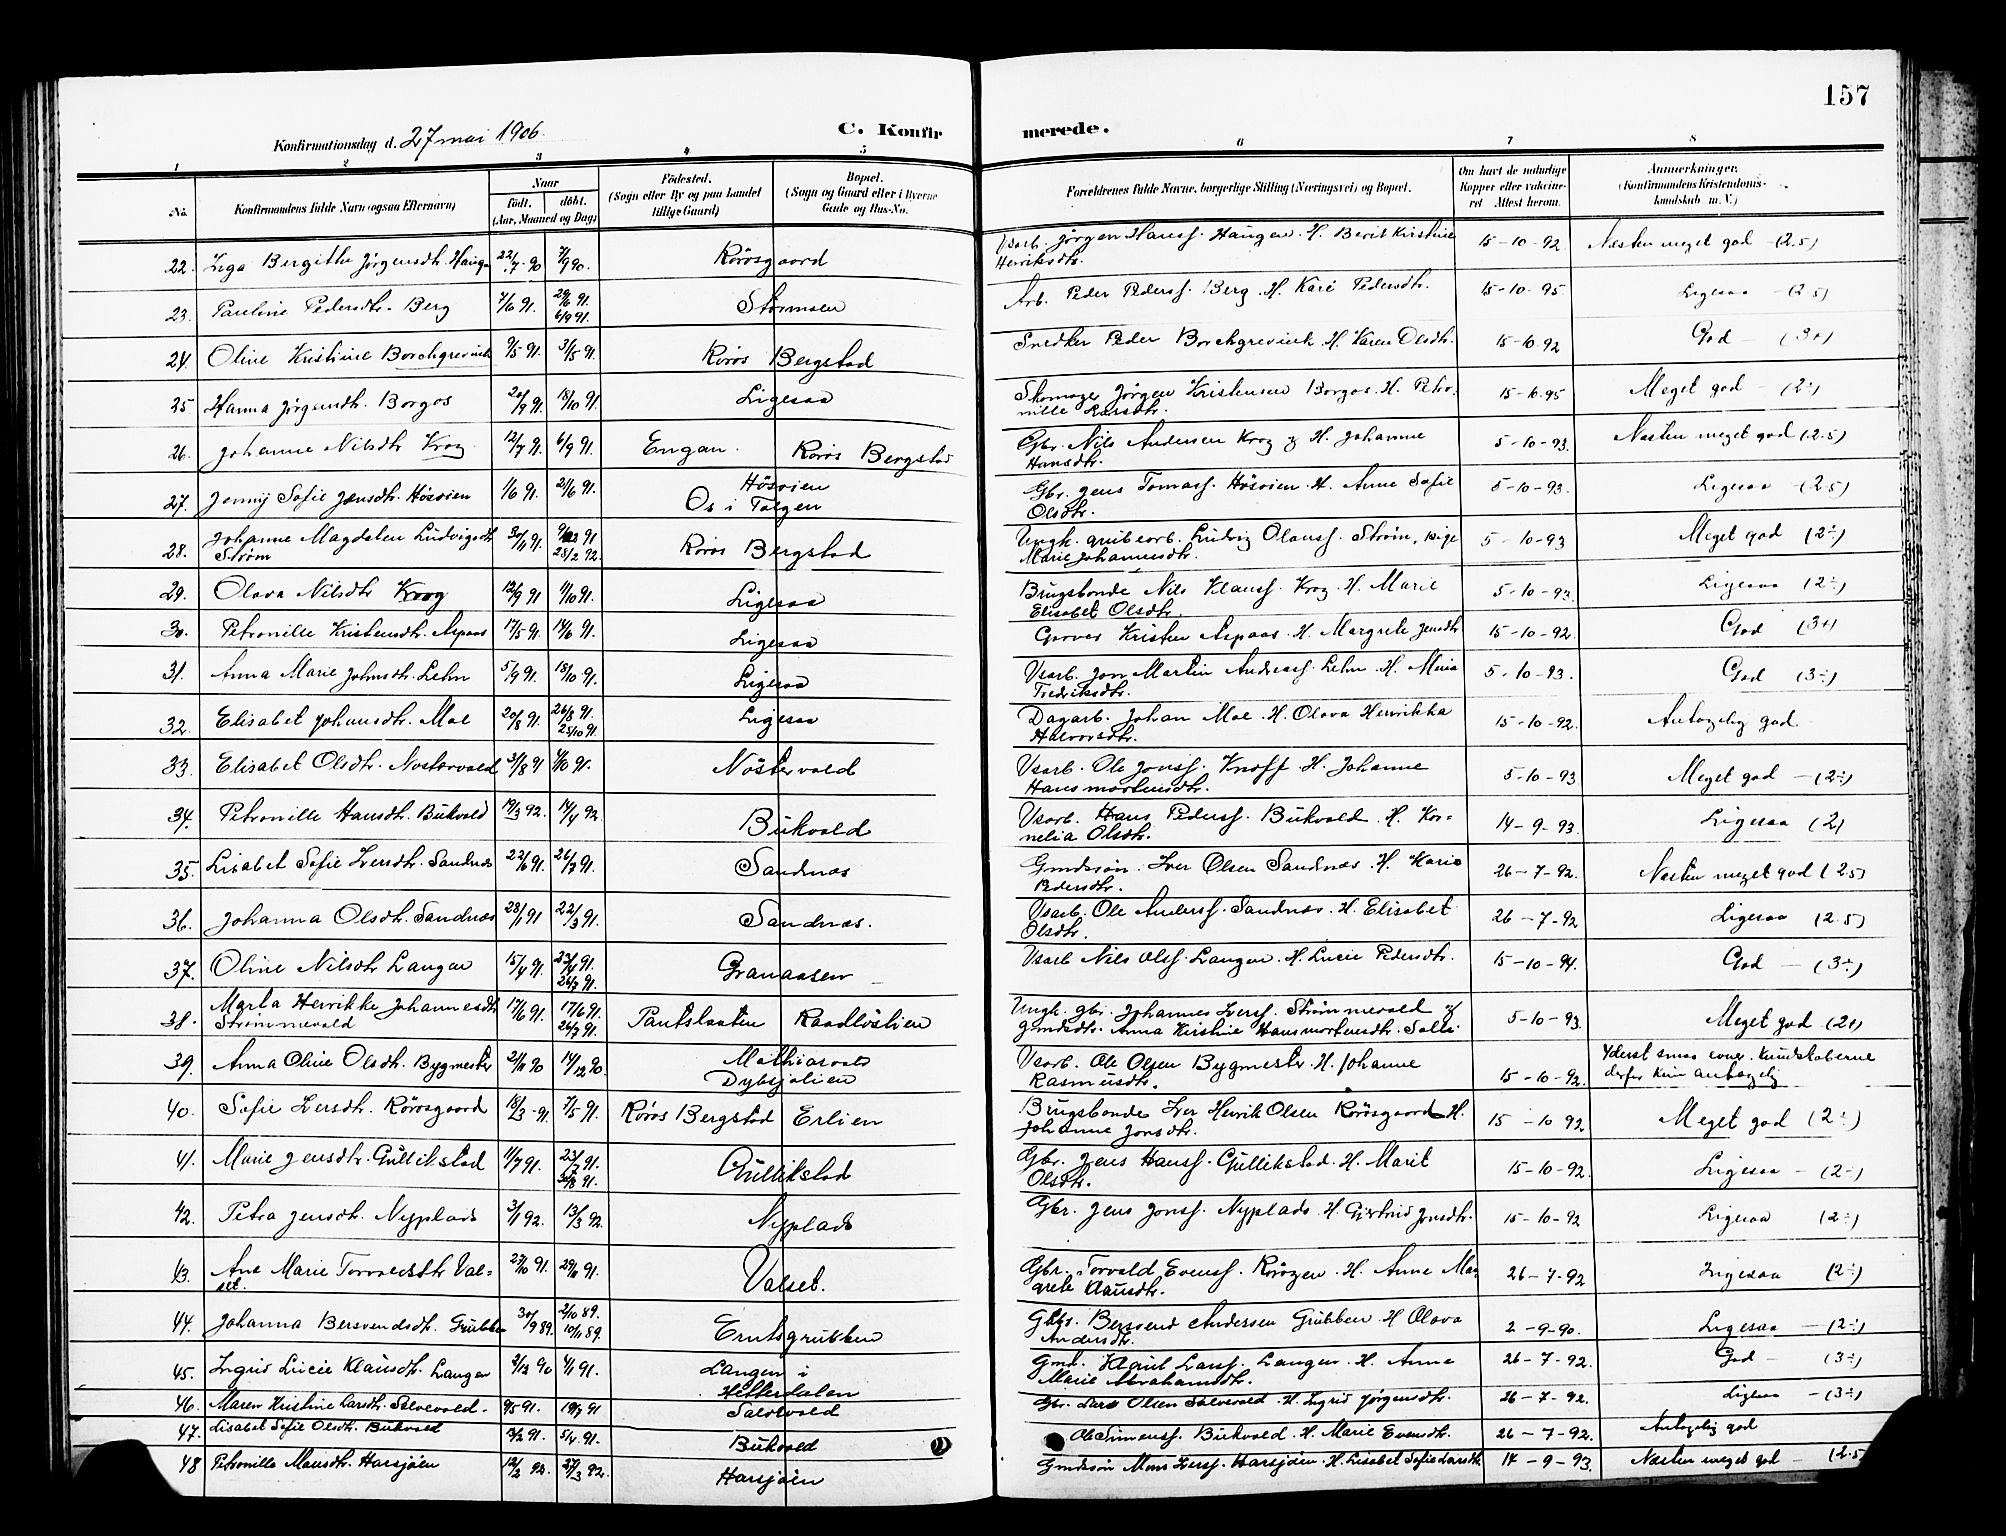 157
Konfirmationsdag d. 27 mai 1906.
C. Konfirmerede.
1 2 3 4 5 6 7 8
No. Konfirmandens fulde Navn (ogsaa Efternavn) Naar födt. döbt. (Aar, Maaned og Dag) Födested. (Sogn eller By og paa Landet tillige Gaard) Bopæl. (Sogn og Gaard eller i Byerne Gade og Hus-No. Forældrenes fulde Navne, borgerlige Stilling (Næringsvei) og Bopæl. Om havt de naturlige Kopper eller vaccineret Attest herom. Anmerkninger. (Konfirmandens Kristendomskundskab m. V.)
22. Inga Bergithe Jørgensdtr. Haugen 22/7-90 7/9 90. Rørosgaard Vsarb. Jørgen Hansf. Haugen. H. Berit Kirstine Henriksdtr. 15-10-92. Næsten meget god - (2.5)
23. Pauline Pedersdtr. Berg 7/6 91. 29/6 91. 6/9 91. Stormoen Arb. Peder Pedersf. Berg. H. Kari Pedersdtr. 15-10-95. Ligesaa (2.5)
24. Oline Kristine Borchgrevink 9/5 91. 31/5 91. Røros Bergstad Snedker Peder Borchgrevink. H. Karen Olsdtr. 15-10.92 God - (3+)
25 Hanna Jørgensdtr. Borgos 20/9 91. 18/10 91. Ligesaa Skomager Jörgen Kristensen Borgos. H. Petronille Larsdtr. 15-10.95 Meget god - (2÷)
26. Johanne Nilsdtr Krog 12/7 91. 6/9 91. Engan. Røros Bergstad Gbr. Nils Andersen Krog & H. Johanne Hansdtr. 5-10-93. Næsten meget god (2.5)
27. Jenny Sofie Jensdtr. Høsøien 1/6 91. 21/6 91. Høsøien Os i Tolgen Gbr. Jens Tomasf. Høsøien. H. Anne Sofie Olsdtr. 5-10-93. Ligesaa - (2.5)
28. Johanne Magdalen Ludvigsdtr Strøm 30/11 91. 28/2 92. Røros Bergstad Ungk. grubearb. Ludvig Olausf. Strøm, pige Marie Johannesdtr. 5-10-93 Meget god (2÷)
29. Olava Nilsdtr Krog 12/9 91 11/10 91. Ligesaa Brugsbonde Nils Klausf. Krog. H. Marie Elisabet Olsdtr. 5-10-93. Ligesaa (2÷)
30. Petronille Kristensdtr. Aspaas 17/5 91. 14/6 91. Ligesaa Garver Kristen Aspaas. H. Margrete Jensdtr 15-10-92. God (3+)
31. Anna Marie Johnsdtr. Lehn 5/9 91. 18/10 91. Ligesaa Vsarb. Jon Martin Andreasf. Lehn. H. Maria Fredriksdtr. 5-10-93. God (3÷)
32. Elisabet Johansdtr. Moe 20/8 91. 26/8 91. 25/10 91. Ligesaa Dagarb. Johan Moe. H. Olava Henrikka Halvorsdtr. 15-10-92. Antagelig god
33. Elisabet Olsdtr. Nostervold 31/8 91 4/10 91. Nöstervold Vsarb. Ole Jonsf. Knoff. H. Johanne Hansmortensdtr. 5-10-93 Meget god - (2÷)
34. Petronille Hansdtr. Bukvold 19/3 92. 14/4 92 Bukvold Vsarb. Hans Pedersf. Bukvold. H. Kornelia Olsdtr. 14-9-93. Ligesaa (2)
35. Lisabet Sofie Iversdtr. Sandnæs 22/6 91. 26/7 91. Sandnæs Gmdssøn. Iver Olsen Sandnæs. H. Maria Pedersdtr. 26-7-92. Næsten meget god (2.5)
36. Johanna Olsdtr. Sandnæs 28/1 91 22/3 91. Sandnæs. Vsarb. Ole Andersf. Sandnæs. H. Elisabet Olsdtr. 26-7-92 Ligesaa (2.5)
37. Oline Nilsdtr Langen 15/4 91. 23/4 91. 26/7 91. Granaasen Vsarb Nils Olsf. Langen. H. Lucie Pedersdtr. 15-10-94. God - (3÷)
38. Marta Henrikke Johannesdtr Strømmevold 17/6 91. 17/6 91. 26/7 91. Raadløslien Ungk. gbr. Johannes Iversf. Strømmevold & gmdsdtr. Anna Kirstine Hansmortensdtr. 5-10-93. Meget god (2+)
39. Anna Oline Olsdtr. Bygmester 2/11 90 14/12 90. Mathiasvold Dybsjølien Vsarb. Ole Olsen Bygmester. H. Johanne Rasmusdtr. 15-10-92. Yderst smaa evner. Kundskaberne derfor kun antagelig
40. Sofie Iversdtr. Rörosgaard 18/3-91. 7/5 91. Røros Bergstad Erlien Brugsbonde Iver Henrik Olsen Rörosgaard H. Johanne Jonsdtr. 15-10 92. Meget god (2÷)
41. Marie Jensdtr. Gullikstad 11/7 91. 23/7 91. 30/8 91. Gullikstad Gbr. Jens Hansf. Gullikstad. H. Marit Olsdtr. 15-10-92. Ligesaa - (2÷)
42. Petra Jensdtr. Nyplads 3/1 92. 13/3 92. Nyplads Gbr. Jens Jonsf. Nyplads. H. Gjertrud Jonsdtr. 15-10-92 Ligesaa (2÷)
43. Ane Marie Torvaldsdtr Valset. 27/10 91. 29/11 91. Valset. Gbr. Torvald Evensf. Rørøgen. H. Anne Margrete Klausdtr. 26-7-92 Ligesaa (2÷)
44. Johanna Bersvendsdtr. Grubben 30/9 89. 2/10 89. 10/11 89. Erntsgrubben Gbr. Bersvend Andersen Grubben H Olava Andersdtr. 2-9-90. Ligesaa - (2÷)
45. Ingrid Lucie Klausdtr. Langen 2/12 90 4/1 91. Langen i Hitterdalen Gmd. Klaus Larsf. Langen. H. Anne Marie Abrahamsdtr. 26-7-92. God - (3÷)
46. Maren Kristine Larsdtr. Solvevold. 9/5 91. 19/7 91 Solvevold Gbr. Lars Olsen Solvevold. H. Ingrid Jørgensdtr. 26-7-92. Ligesaa - (3÷)
47. Lisabet Sofie Olsdtr. Bukvold 5/4 91. Bukvold Ole Simensf. Bukvold. H. Marie Evensdtr. 26-7-92. Antagelig god
48 Petronille Monsdtr. Harsjøen 12/2 92. 27/3 92. Harsjøen Gmdssøn Mons Iversf. Harsjøen. H. Lisabet Sofie Larsdtr 14-9-93. Næsten meget god - (2.5)